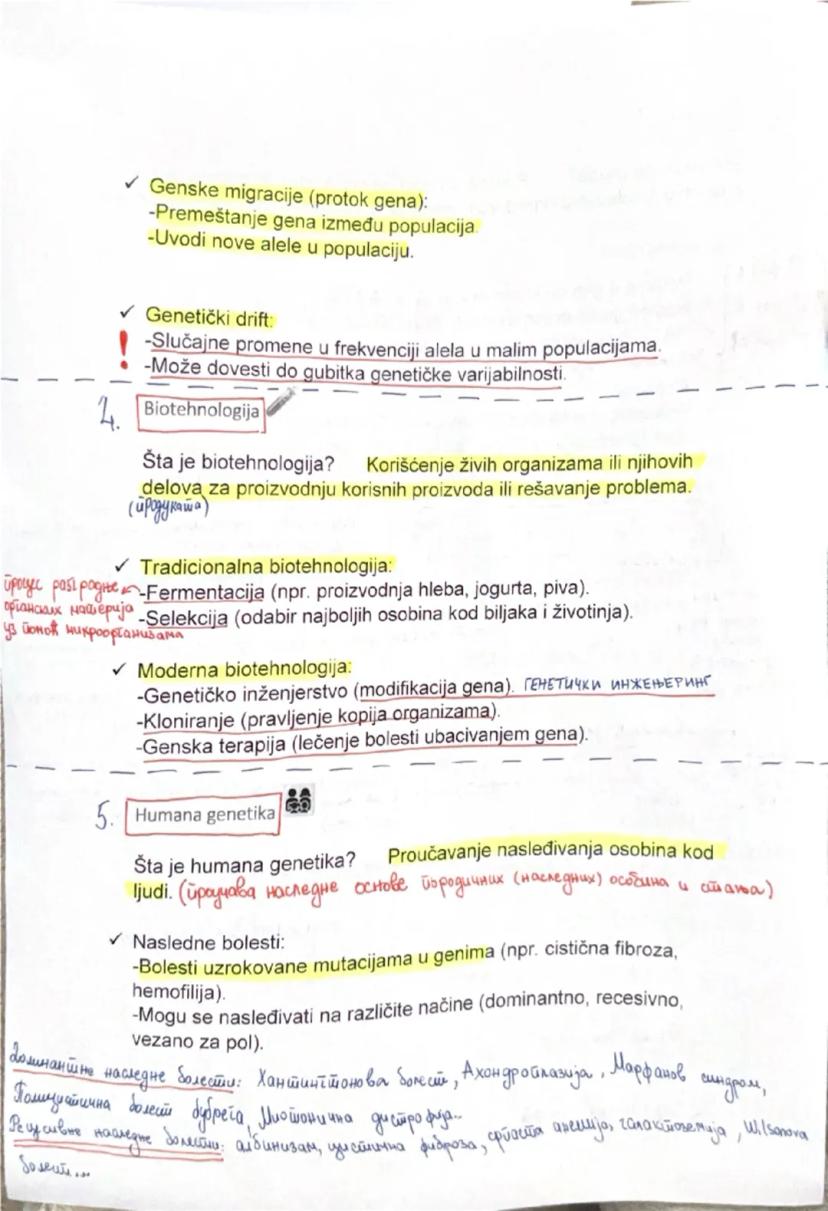 ✓ Genske migracije (protok gena):
-Premeštanje gena između populacija.
-Uvodi nove alele u populaciju.
✓ Genetički drift:
! -Slučajne promene u frekvenciji alela u malim populacijama.
-Može dovesti do gubitka genetičke varijabilnosti.
4. Biotehnologija
Šta je biotehnologija? Korišćenje živih organizama ili njihovih
delova za proizvodnju korisnih proizvoda ili rešavanje problema.
(продуката)
✓ Tradicionalna biotehnologija:
процес разградње -Fermentacija (npr. proizvodnja hleba, jogurta, piva).
органских материја -Selekcija (odabir najboljih osobina kod biljaka i životinja).
уз помоћ микроорганизама
✓ Moderna biotehnologija:
-Genetičko inženjerstvo (modifikacija gena). ГЕНЕТИЧКИ ИНЖЕЊЕРИНГ
-Kloniranje (pravljenje kopija organizama).
-Genska terapija (lečenje bolesti ubacivanjem gena).
5. Humana genetika
Šta je humana genetika? Proučavanje nasleđivanja osobina kod
ljudi. (проучава наследне основе породичних (наследних) особина и стања)
✓ Nasledne bolesti:
-Bolesti uzrokovane mutacijama u genima (npr. cistična fibroza,
hemofilija).
-Mogu se nasleđivati na različite načine (dominantno, recesivno,
vezano za pol).
Доминантне наследне болести: Хантингтонова болест, Ахондроплазија, Марфанов синдром,
Полицистична болест бубрега, Миотонична дистрофија...
Рецесивне наследне болести: албинизам, цистична фиброза, српаста анемија, галактоземија, Wilsonova
болест...